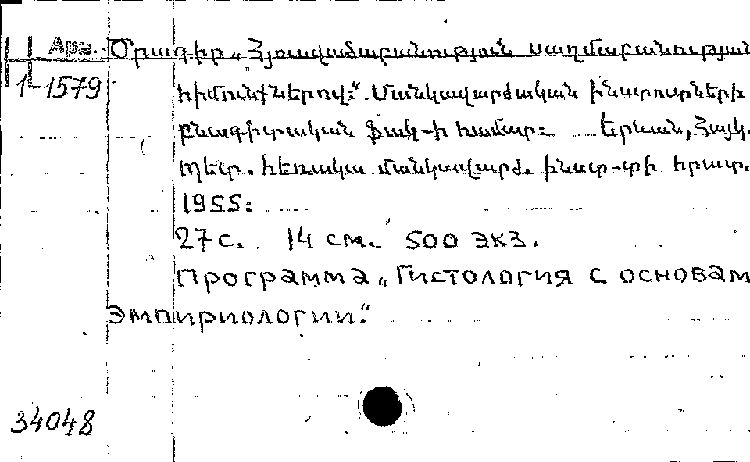 Арм. Ծրագիր „Հյուսվածաբանություն սաղմաբանության
1-1579 հիմունքներով:“ Մանկավարժական ինստիտուտների
բնագիտական ֆակ-ի համար: Երևան, Հայկ.
պետ. հեռակա մանկավարժ. ինստ-տի հրատ.
1955:
27 с. 14 см. 500 экз.
Программа „Гистология с основам
эмпириологии.“
34048